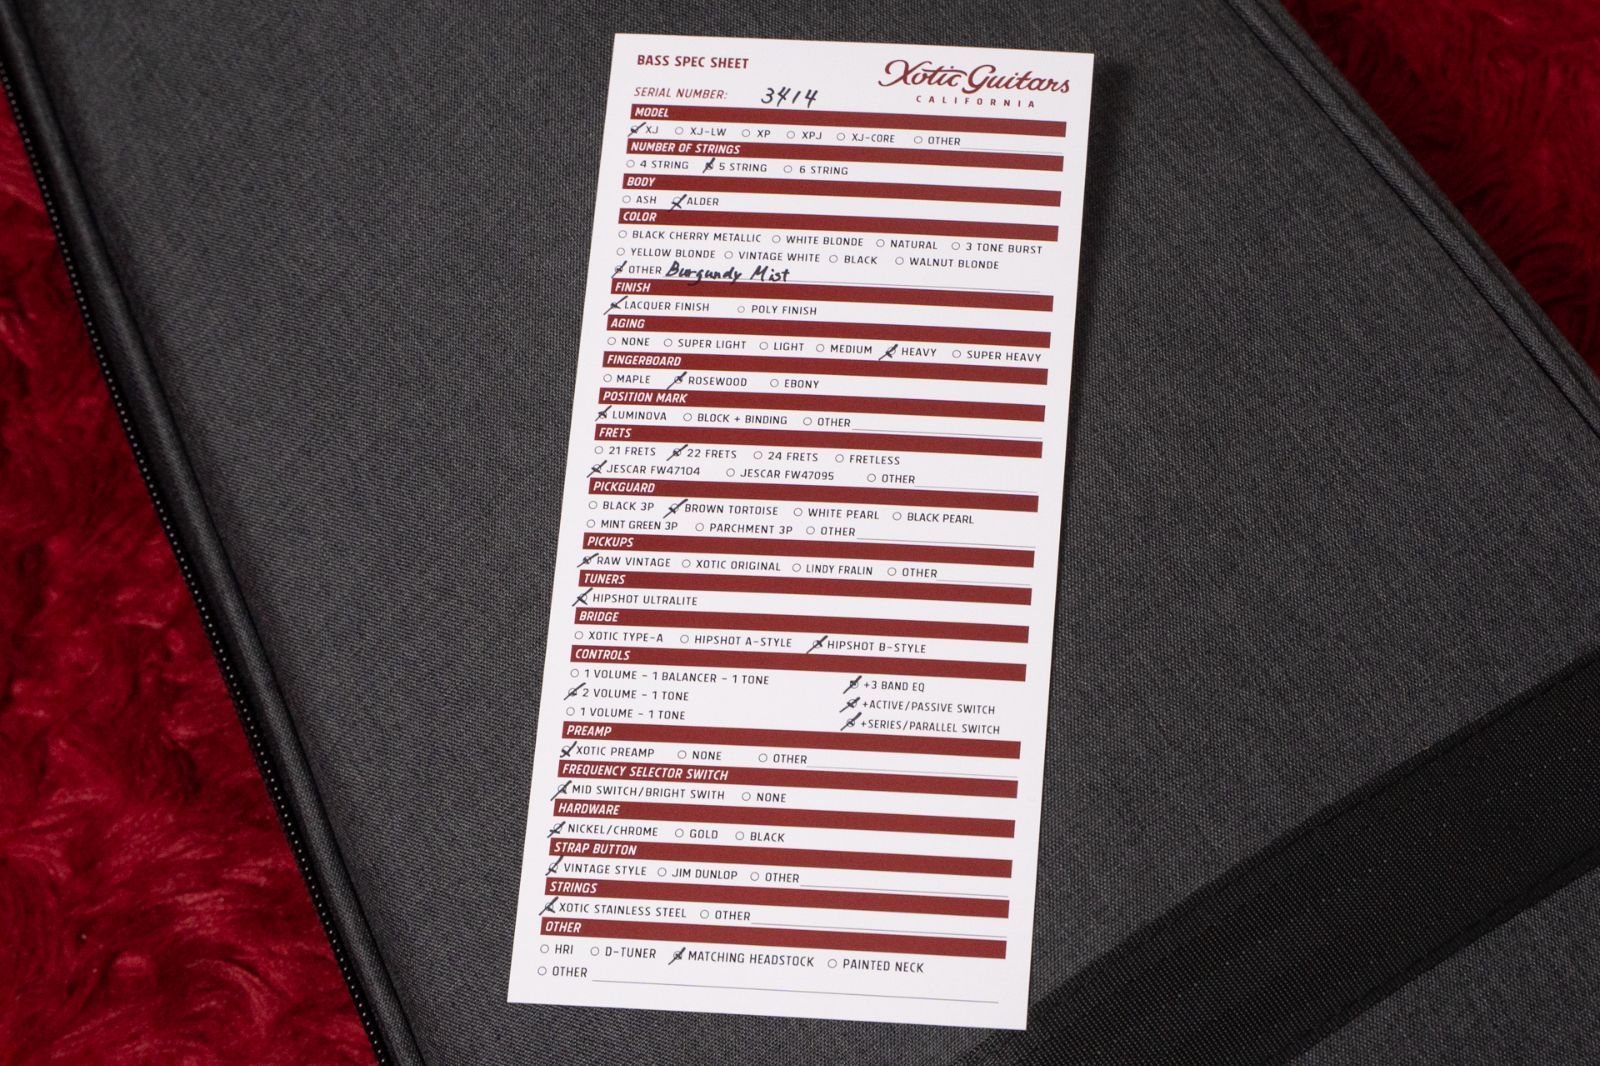 BASS SPEC SHEET
Xotic Guitars
CALIFORNIA
SERIAL NUMBER: 3414
MODEL
XJ XJ-LW XP XPJ XJ-CORE OTHER
NUMBER OF STRINGS
4 STRING 5 STRING 6 STRING
BODY
ASH ALDER
COLOR
BLACK CHERRY METALLIC WHITE BLONDE NATURAL 3 TONE BURST
YELLOW BLONDE VINTAGE WHITE BLACK WALNUT BLONDE
OTHER Burgundy Mist
FINISH
LACQUER FINISH POLY FINISH
AGING
NONE SUPER LIGHT LIGHT MEDIUM HEAVY SUPER HEAVY
FINGERBOARD
MAPLE ROSEWOOD EBONY
POSITION MARK
LUMINOVA BLOCK + BINDING OTHER
FRETS
21 FRETS 22 FRETS 24 FRETS FRETLESS
JESCAR FW47104 JESCAR FW47095 OTHER
PICKGUARD
BLACK 3P BROWN TORTOISE WHITE PEARL BLACK PEARL
MINT GREEN 3P PARCHMENT 3P OTHER
PICKUPS
RAW VINTAGE XOTIC ORIGINAL LINDY FRALIN OTHER
TUNERS
HIPSHOT ULTRALITE
BRIDGE
XOTIC TYPE-A HIPSHOT A-STYLE HIPSHOT B-STYLE
CONTROLS
1 VOLUME - 1 BALANCER - 1 TONE +3 BAND EQ
2 VOLUME - 1 TONE +ACTIVE/PASSIVE SWITCH
1 VOLUME - 1 TONE +SERIES/PARALLEL SWITCH
PREAMP
XOTIC PREAMP NONE OTHER
FREQUENCY SELECTOR SWITCH
MID SWITCH/BRIGHT SWITH NONE
HARDWARE
NICKEL/CHROME GOLD BLACK
STRAP BUTTON
VINTAGE STYLE JIM DUNLOP OTHER
STRINGS
XOTIC STAINLESS STEEL OTHER
OTHER
HRI D-TUNER MATCHING HEADSTOCK PAINTED NECK
OTHER